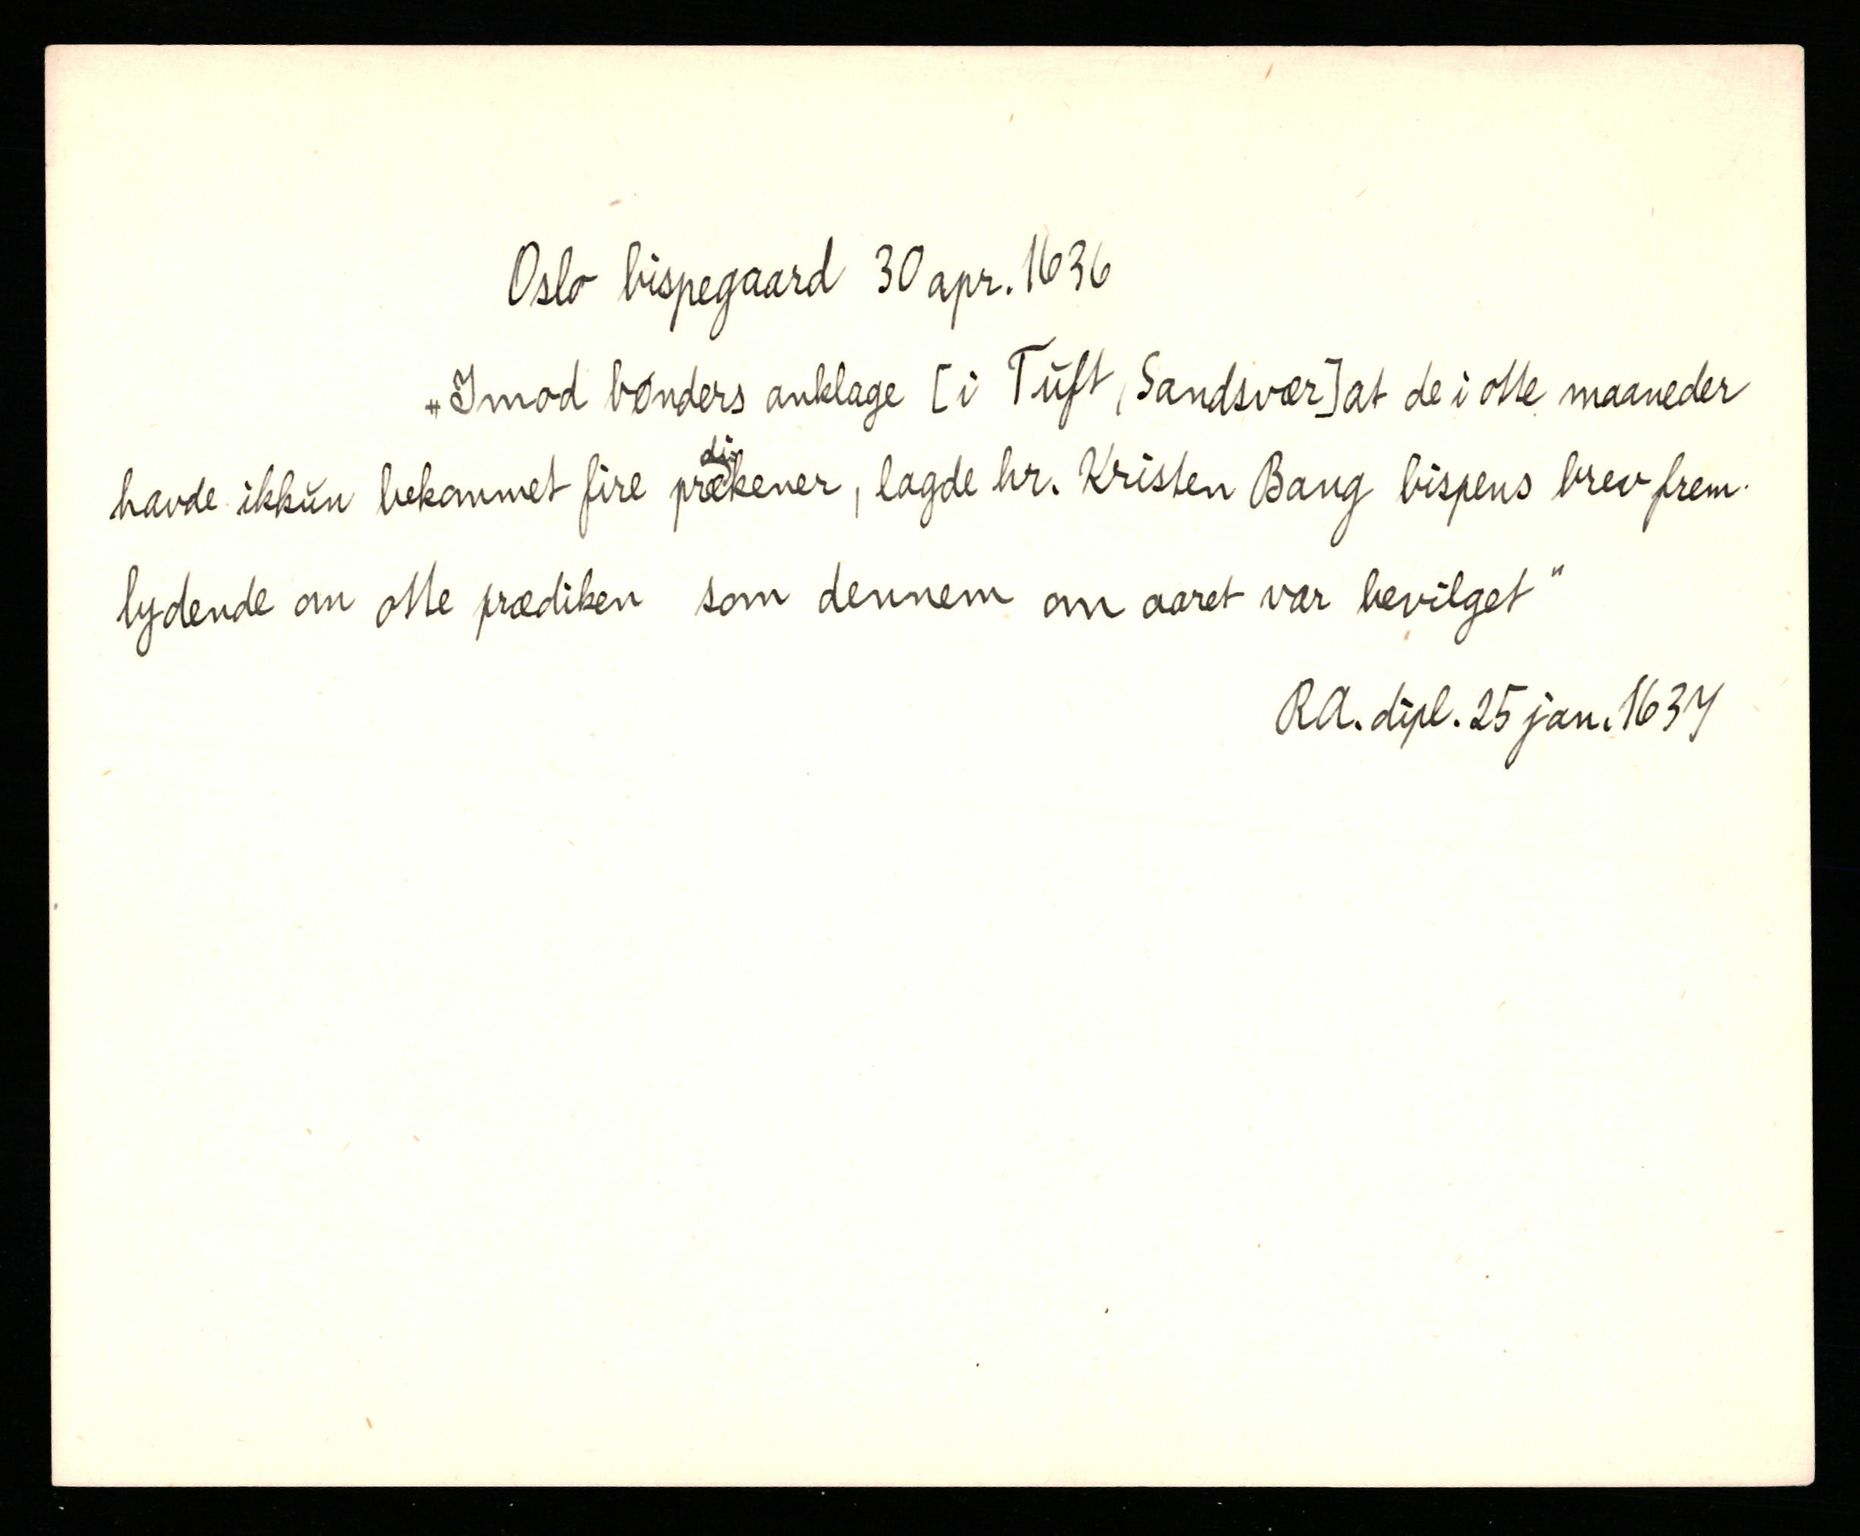 Oslo bispegaard 30 apr. 1636
„Imod bønders anklage [i Tuft, Sandsvær] at de i otte maaneder
havde ikkun bekommet fire prædikener, lagde hr. Kristen Bang bispens brev frem
lydende om otte prædiken som dennem om aaret var bevilget"
RA. dipl. 25 jan. 1637